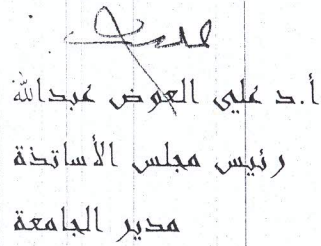 أ.د علي العوض عبدالله
رئيس مجلس الأساتذة
مدير الجامعة